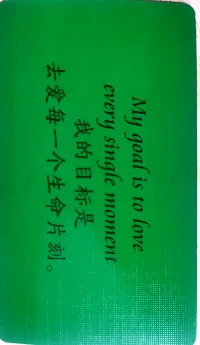 My goal is to love
every single moment
我的目标是
去爱每一个生命片刻。